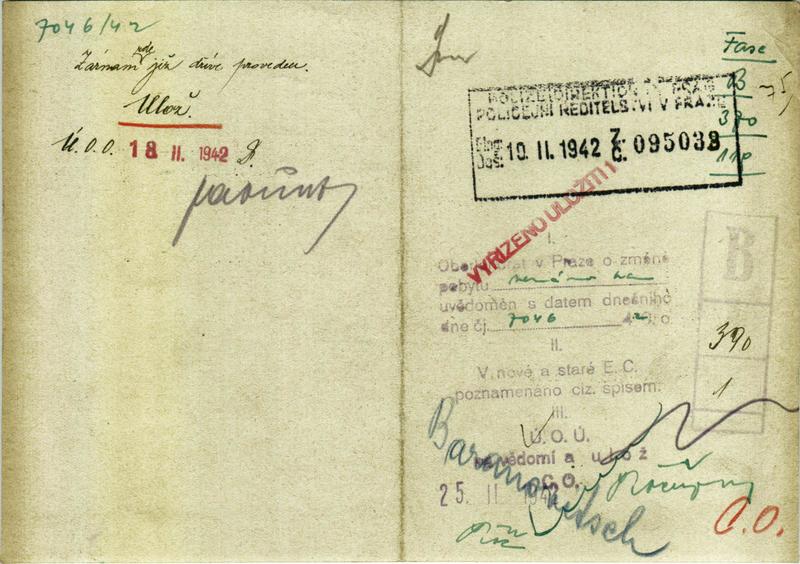 7046/42
Záznam zde již dříve proveden.
Ulož.
Ú.O.O. 18 II. 1942
Fasc
B
75,
390
110
POLIZEIDIREKTION IN PRAG
POLICEJNÍ ŘEDITELSTVÍ V PRAZE
Eing.
Doš. 10. II. 1942 Z. Č. 095038
VYŘÍZENO ULOŽIT!
I.
Oberlandrat v Praze o změně
pobytu
uvědoměn s datem dnešního
dne čj. 7046 42
II.
V nové a staré E. C.
poznamenáno ciz. spisem.
III.
Ú.O.Ú.
na vědomí a ulož
C.O.
25. II. 1942
B
390
1
Baranowitsch
C.O.